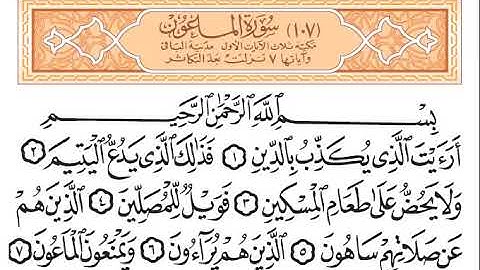 (١٠٧) سورة الماعون
مكية ثلاث الآيات الأول مدنية الباقي
وآياتها ٧ نزلت بعد التكاثر
بِسْمِ ٱللَّهِ ٱلرَّحْمَٰنِ ٱلرَّحِيمِ
أَرَءَيْتَ ٱلَّذِى يُكَذِّبُ بِٱلدِّينِ ١ فَذَٰلِكَ ٱلَّذِى يَدُعُّ ٱلْيَتِيمَ ٢
وَلَا يَحُضُّ عَلَىٰ طَعَامِ ٱلْمِسْكِينِ ٣ فَوَيْلٌ لِّلْمُصَلِّينَ ٤ ٱلَّذِينَ هُمْ
عَن صَلَاتِهِمْ سَاهُونَ ٥ ٱلَّذِينَ هُمْ يُرَآءُونَ ٦ وَيَمْنَعُونَ ٱلْمَاعُونَ ٧